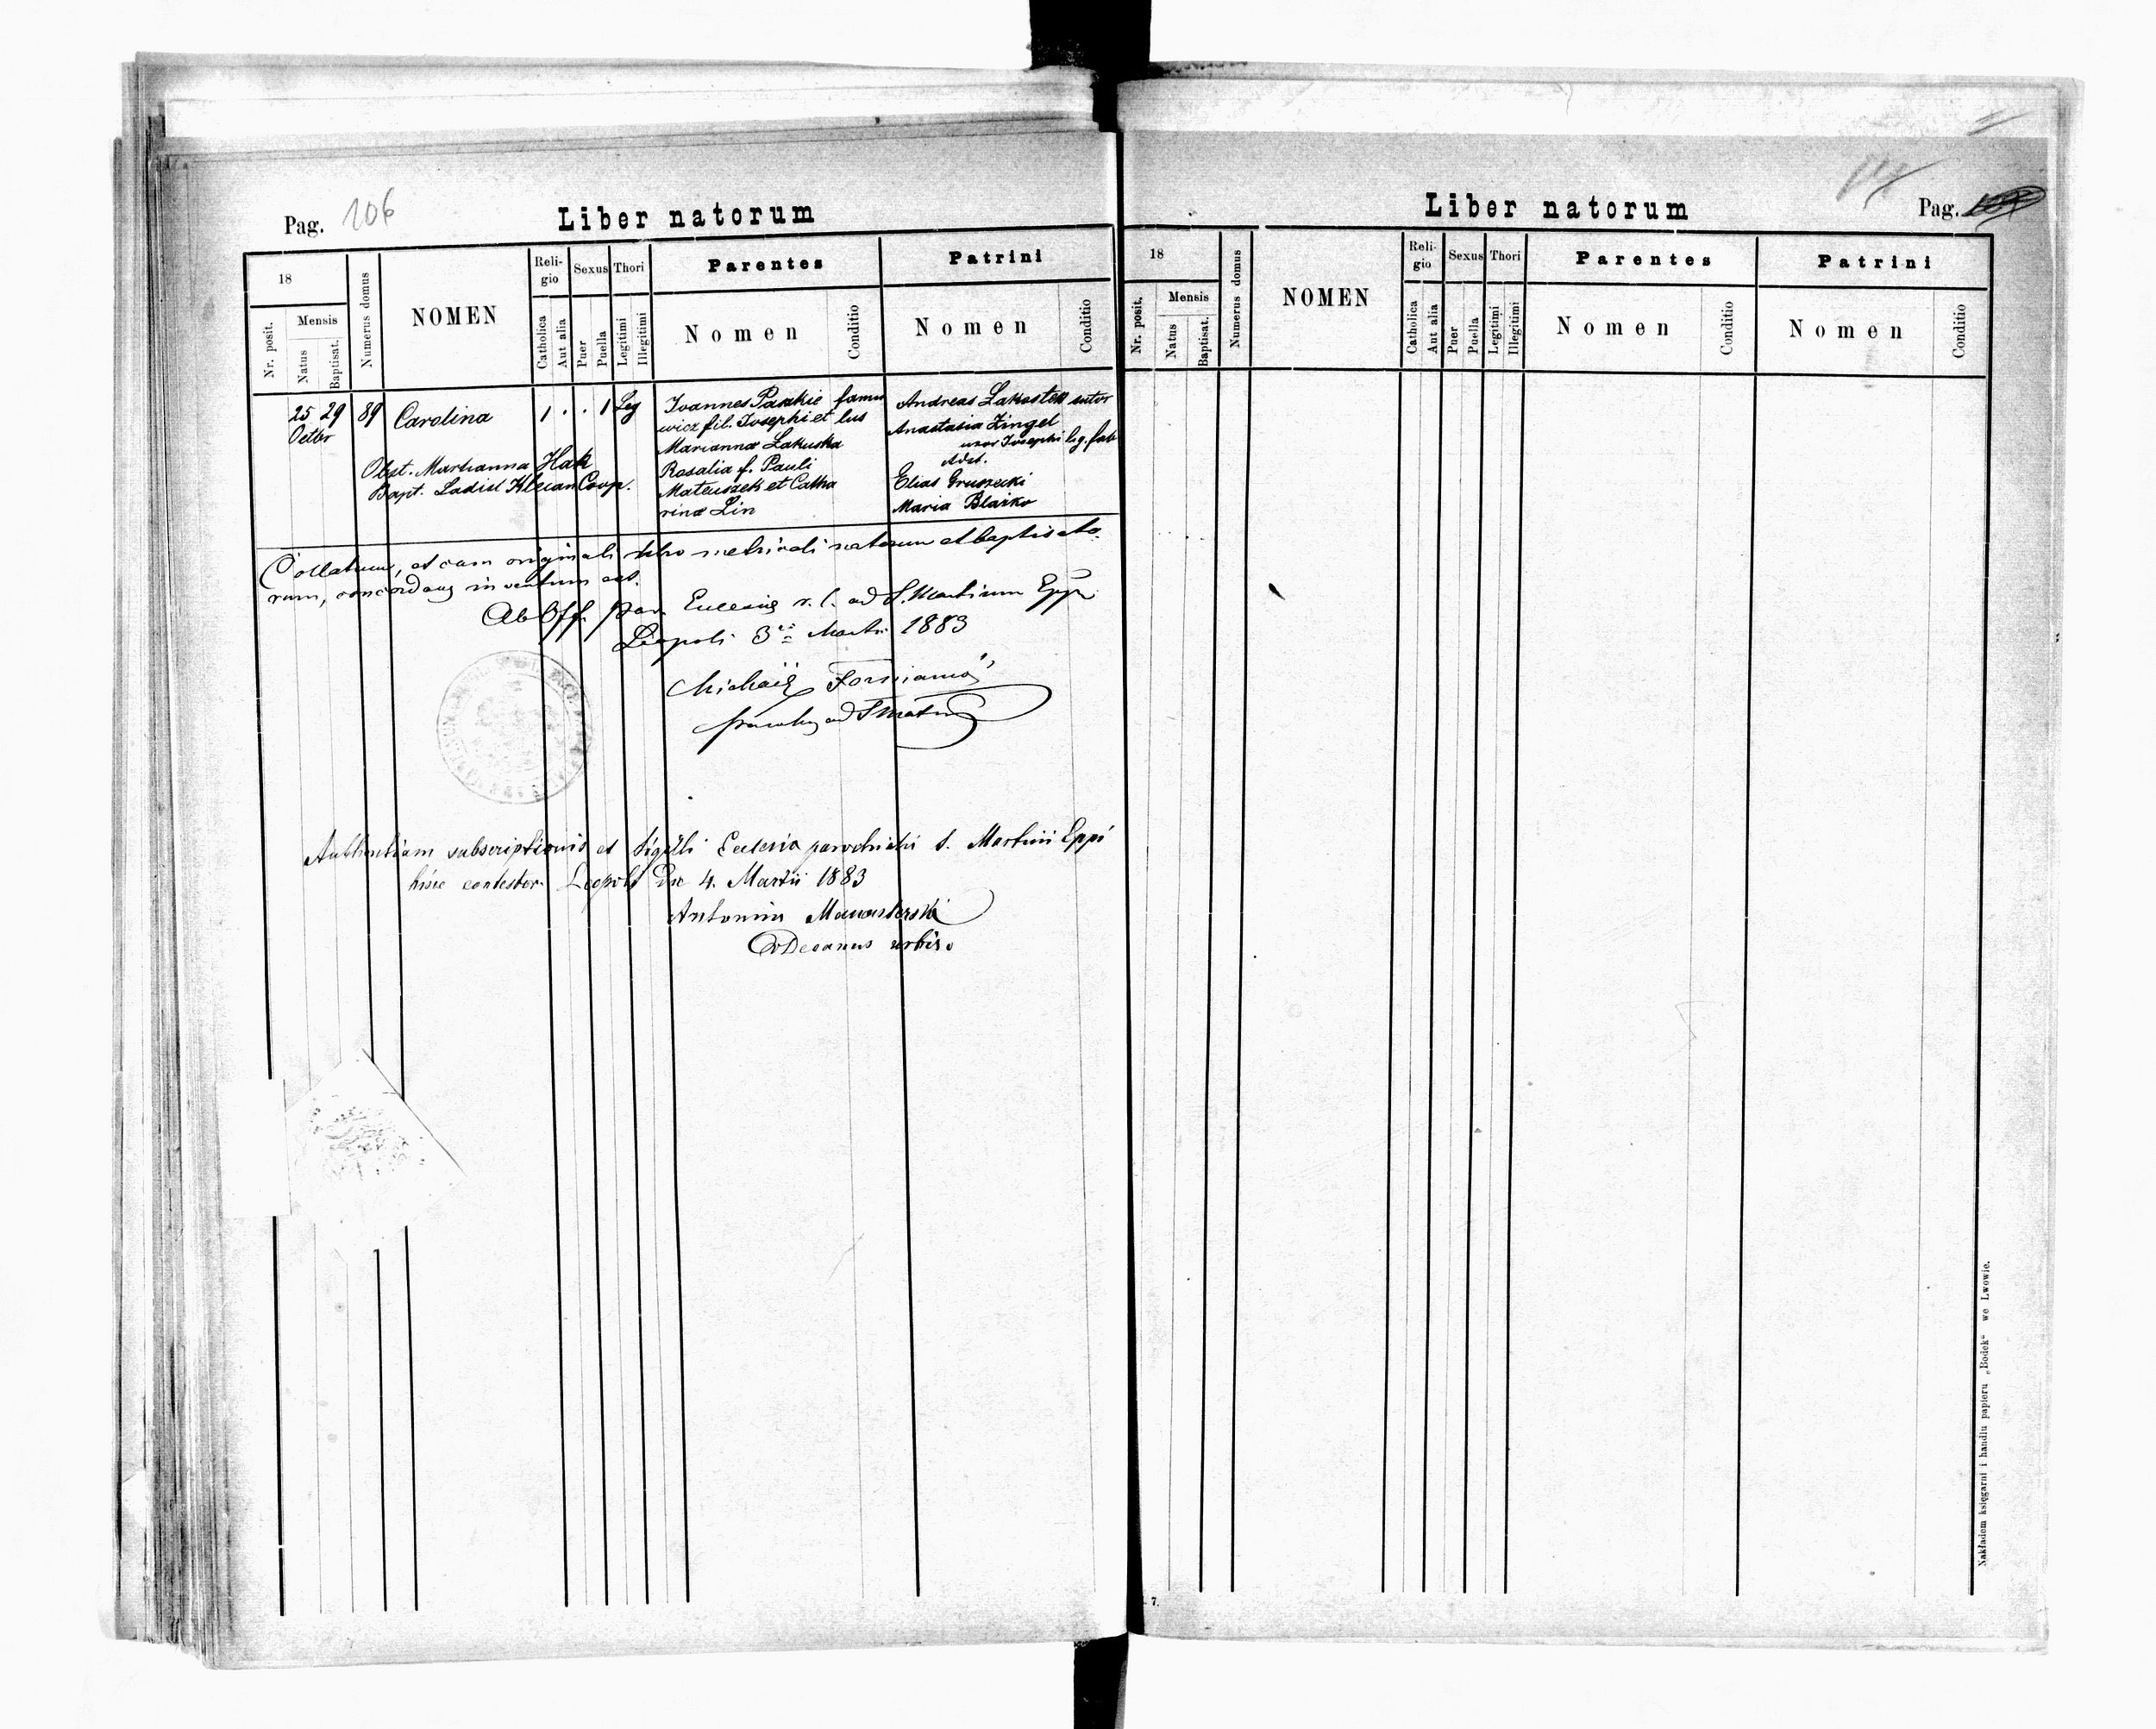 Pag. 106
Liber natorum
18
Nr. posit.
Mensis
Natus
Baptisat.
Numerus domus
NOMEN
Reli-
gio
Catholica
Aut alia
Sexus
Puer
Puella
Thori
Legitimi
Illegitimi
Parentes
Nomen
Conditio
Patrini
Nomen
Conditio
25 29 89 Carolina 1 . . 1 Leg
Octbr
Obst. Marianna Hak
Bapt. Ladisl Coop.
Joannes Paszkie famu
wicz fil. Josephi et lus
Marianna Lakuska
Rosalia f. Pauli
Mateuszek et Catha
rina Lin
Andreas sutor
Anastasia Zingel
uxor Josephi lig. fab
Adst.
Elias Gruszecki
Maria Blaiko
Collatum, et cum originali libro metricali natorum et baptisato
rum, concordans inventum est.
Ab Off. par. Ecclesiae r. l. ad S. Martinum Epp
Leopoli 3 Martii 1883
Michaël
ad S Mart
Authentiam subscriptionis et sigilli Ecclesia parochialis S. Martini Eppi
hisce contestor. Leopoli Die 4. Martii 1883
Antonius Manasterski
Decanus urbis
Liber natorum
Pag.
18
Nr. posit.
Mensis
Natus
Baptisat.
Numerus domus
NOMEN
Reli-
gio
Catholica
Aut alia
Sexus
Puer
Puella
Thori
Legitimi
Illegitimi
Parentes
Nomen
Conditio
Patrini
Nomen
Conditio
7.
Nakładem księgarni i handlu papieru „Bodek" we Lwowie.